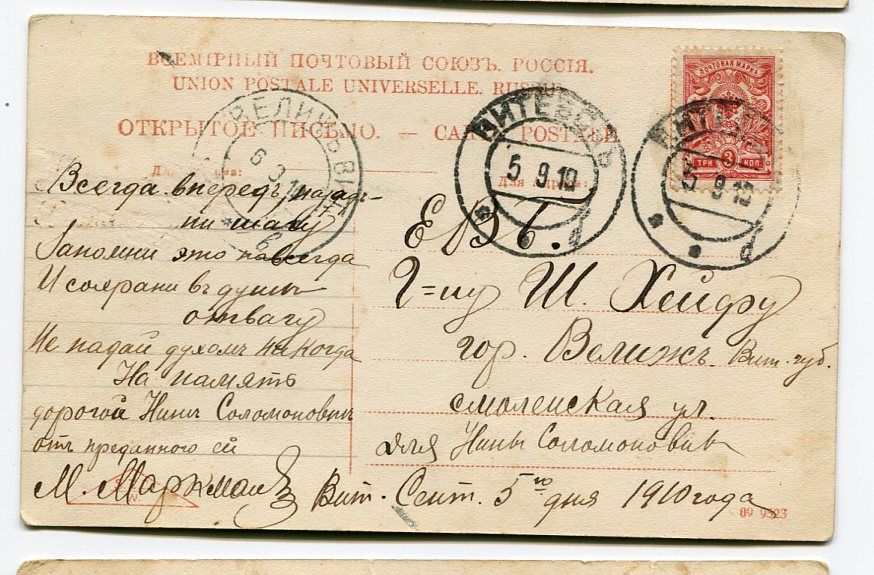 ВСЕМІРНЫЙ ПОЧТОВЫЙ СОЮЗЪ. РОССІЯ.
UNION POSTALE UNIVERSELLE. RUSSIE
ОТКРЫТОЕ ПИСЬМО. — CARTE POSTALE
ПОЧТОВАЯ МАРКА
ТРИ 3 КОП.
ВЕЛИЖЪ ВИТ.
6 9 10
ВИТЕБСКЪ
5 9 10
ВИТЕБСКЪ
5 9 10
Для
Для
Всегда впередъ, ни
ни шагу
Запомни это навсегда
И сохрани въ душѣ
отвагу
Не падай духомъ никогда
На память
дорогой Нинѣ Соломоновнѣ
отъ преданного ей
М.
Е В Б.
Г=ну Ш. Хейфу
гор. Велижъ Вит. губ.
Смоленская ул.
для Нины Соломоновны
Вит. Сент. 5го дня 1910 года
09 9523